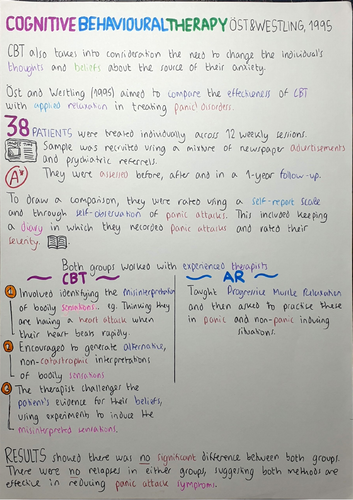 COGNITIVE BEHAVIOURAL THERAPY ÖST & WESTLING, 1995
CBT also takes into consideration the need to change the individual's
thoughts and beliefs about the source of their anxiety.
Öst and Westling (1995) aimed to compare the effectiveness of CBT
with applied relaxation in treating panic disorders.
38 PATIENTS were treated individually across 12 weekly sessions.
Sample was recruited using a mixture of newspaper advertisements
and psychiatric referrels.
A+
They were assessed before, after and in a 1-year follow-up.
To draw a comparison, they were rated using a self-report scale
and through self-observation of panic attacks. This included keeping
a diary in which they recorded panic attacks and rated their
severity.
Both groups worked with experienced therapists
CBT
1 Involved identifying the misinterpretation
of bodily sensations... eg. Thinking they
are having a heart attack when
their heart beats rapidly.
2 Encouraged to generate alternative,
non-catastrophic interpretations
of bodily sensations
3 The therapist challenges the
patient's evidence for their beliefs,
using experiments to induce the
misinterpreted sensations.
AR
Taught Progressive Muscle Relaxation
and then asked to practice these
in panic and non-panic inducing
situations.
RESULTS showed there was no significant difference between both groups.
There were no relapses in either groups, suggesting both methods are
effective in reducing panic attack symptoms.